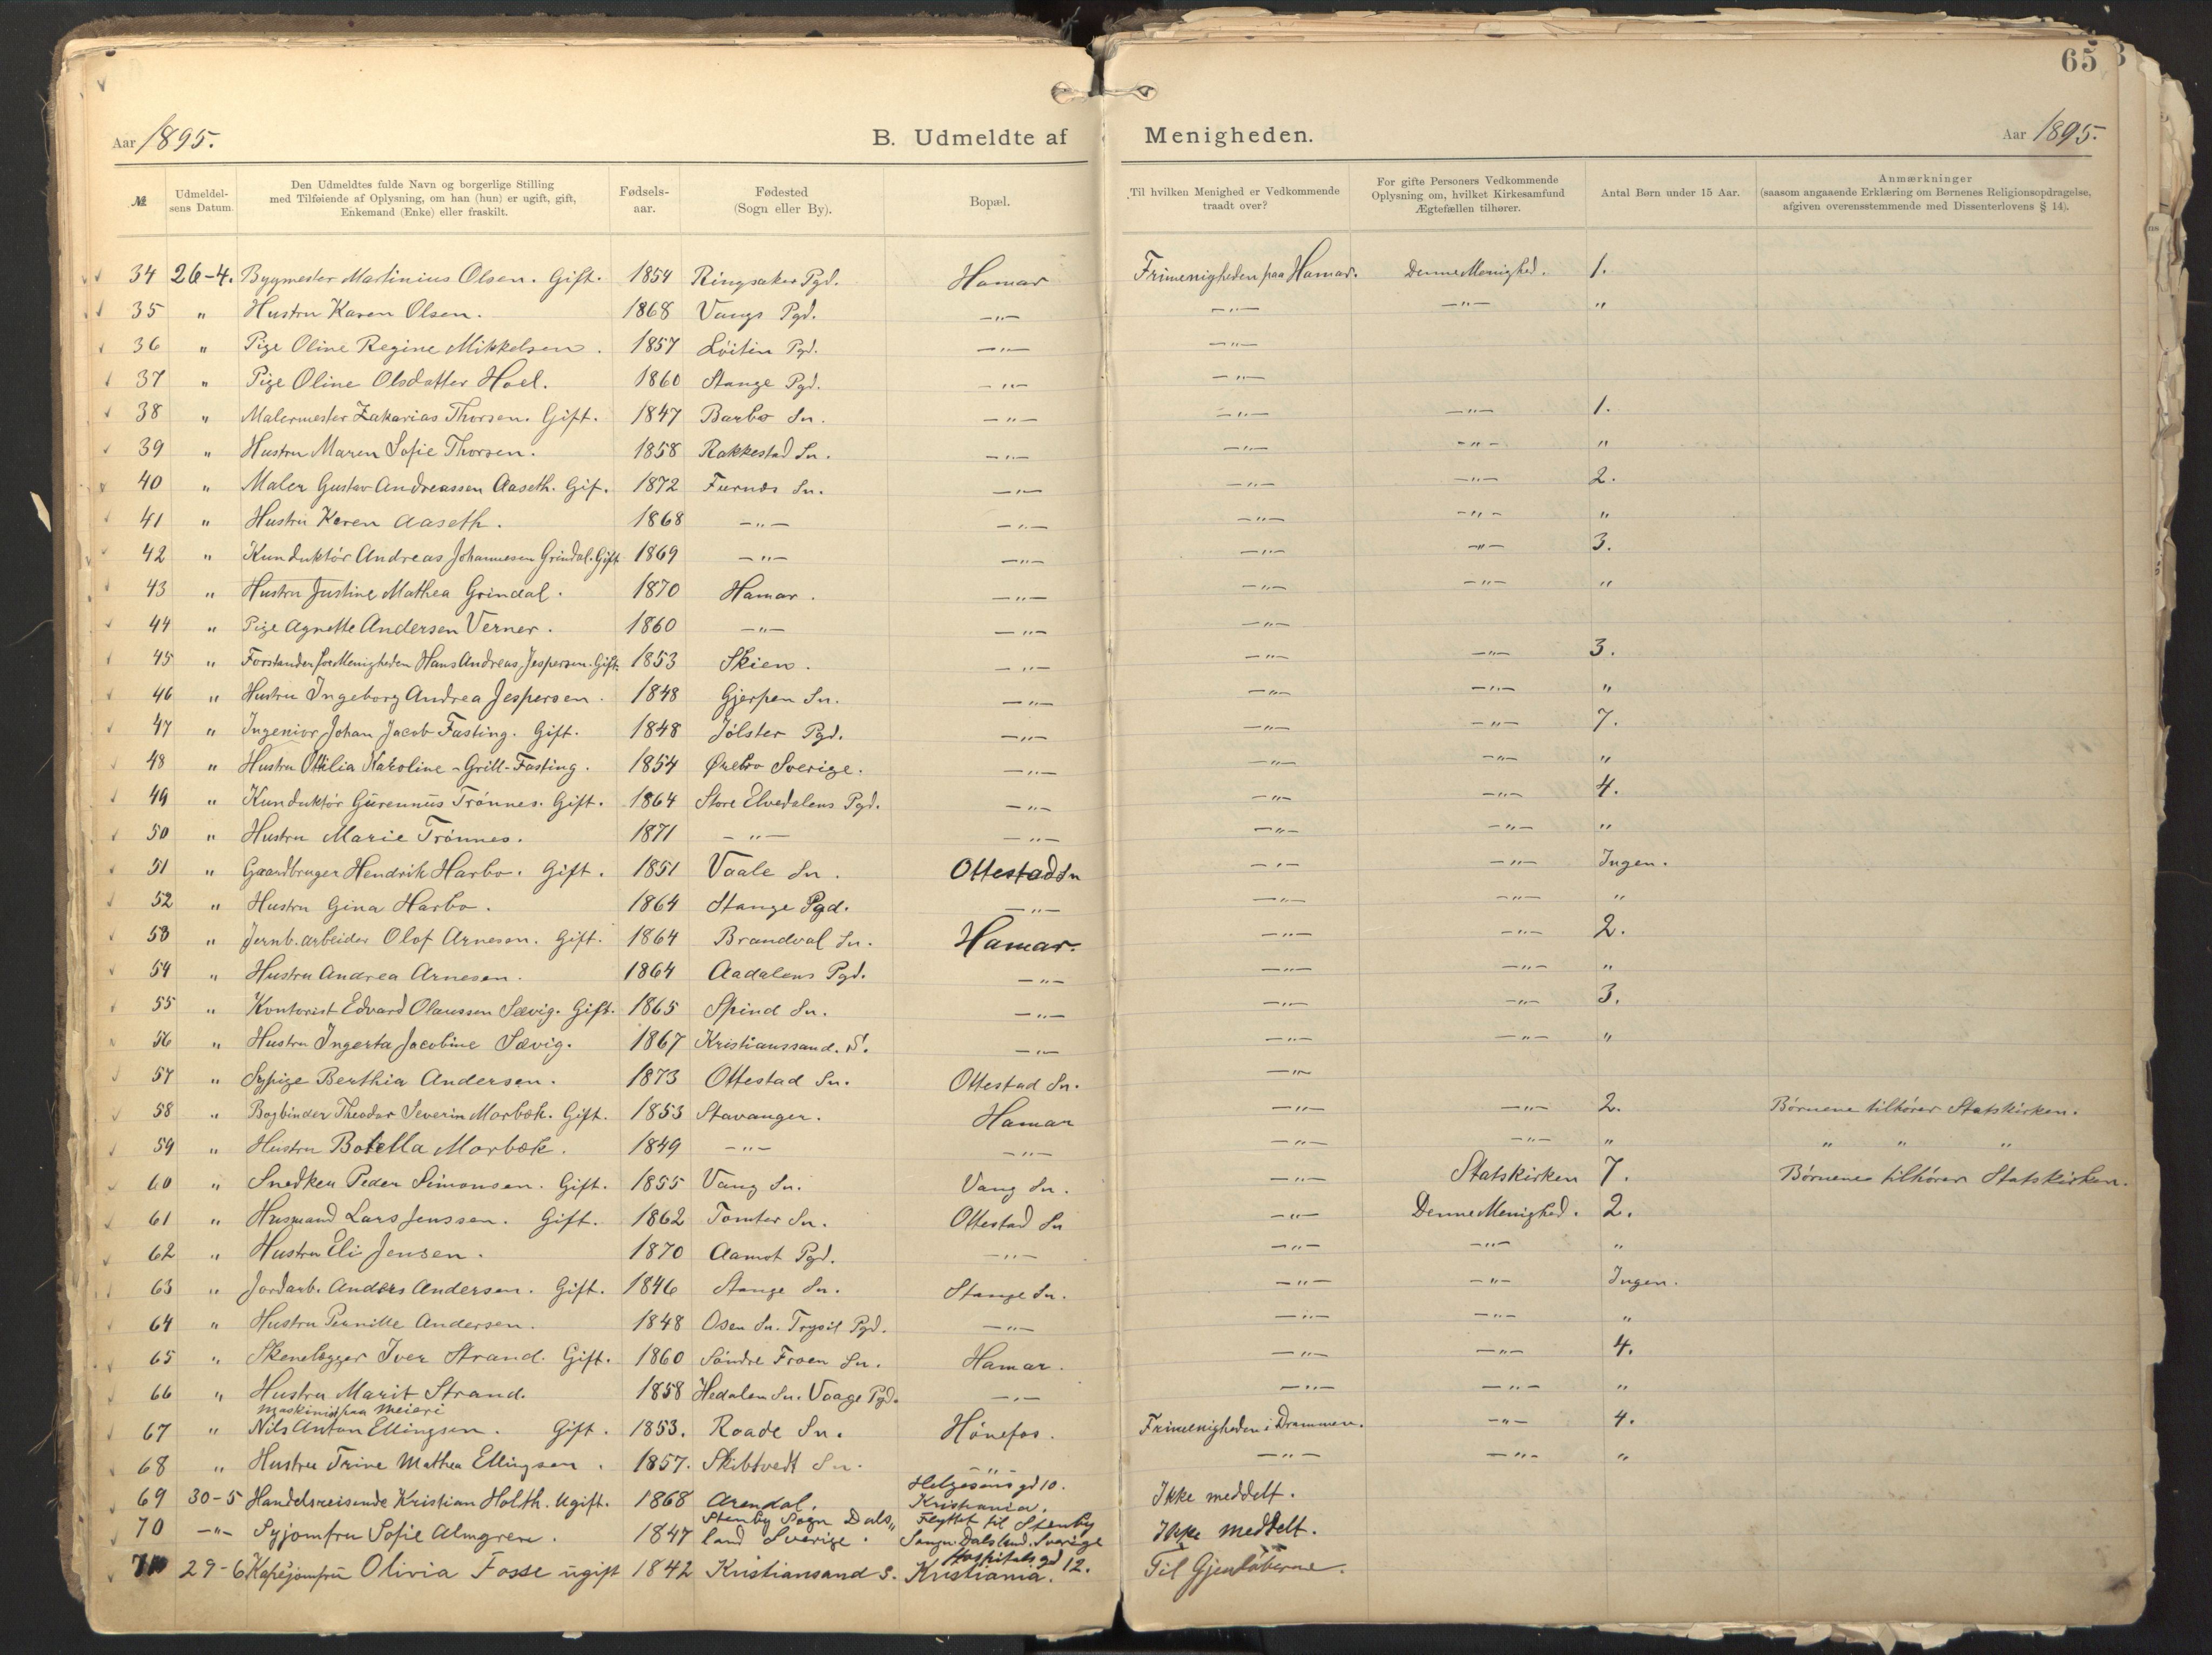 65
Aar 1895. B. Udmeldte af Menigheden. Aar 1895.
№ Udmeldelsens Datum. Den Udmeldtes fulde Navn og borgerlige Stilling med Tilføiende af Oplysning, om han (hun) er ugift, gift, Enkemand (Enke) eller fraskilt. Fødselsaar. Fødested (Sogn eller By). Bopæl. Til hvilken Menighed er Vedkommende traadt over? For gifte Personers Vedkommende Oplysning om, hvilket Kirkesamfund Ægtefællen tilhører. Antal Børn under 15 Aar. Anmærkninger (saasom angaaende Erklæring om Børnenes Religionsopdragelse, afgiven overensstemmende med Dissenterlovens § 14).
34 26-4. Bygmester Martinius Olsen. Gift. 1854 Ringsaker Pgd. Hamar Frimenigheden paa Hamar. Denne Menighed. 1.
35 " Hustru Karen Olsen. 1868 Vangs Pgd. —"— —"— —"— "
36 " Pige Oline Regine Mikkelsen. 1857 Löiten Pgd. —"— —"—
37 " Pige Oline Olsdatter Hoel. 1860 Stange Pgd. —"— —"—
38 " Malermester Zakarias Thorsen. Gift. 1847 Barbo Sn. —"— —"— —"— 1.
39 " Hustru Maren Sofie Thorsen. 1858 Rakkestad Sn. —"— —"— —"— "
40 " Maler Gustav Andreassen Aaseth. Gif. 1872 Furnes Sn. —"— —"— —"— 2.
41 " Hustru Karen Aaseth. 1868 —"— —"— —"— —"— "
42 " Kunduktör Andreas Johannesen Grindal. Gift 1869 —"— —"— —"— —"— 3.
43 " Hustru Justine Mathea Grindal. 1870 Hamar. —"— —"— —"— "
44 " Pige Agnette Andersen Verner. 1860 —"— —"— —"—
45 " Forstander for Menigheden Hans Andreas Jespersen. Gift. 1853 Skien. —"— —"— —"— 3.
46 " Hustru Ingeborg Andrea Jespersen. 1848 Gjerpen Sn. —"— —"— —"— "
47 " Ingeniör Johan Jacob Fasting. Gift. 1848 Jölster Pgd. —"— —"— —"— 7.
48 " Hustru Ottilia Karoline - Grill-Fasting. 1854 Ørebro Sverige. —"— —"— —"— "
49 " Kunduktör Gürennüs Trönnes. Gift. 1864 Store Elvedalens Pgd. —"— —"— —"— 4.
50 " Hustru Marie Trönnes. 1871 —"— —"— —"— —"— "
51 " Gaardbruger Hendrik Harbo. Gift. 1851 Vaale Sn. Ottestad Sn —"— —"— Ingen.
52 " Hustru Gina Harbo. 1864 Stange Pgd. —"— —"— —"— "
53 " Jernb. arbeider Olof Arnesen. Gift. 1864 Brandval Sn. Hamar. —"— —"— 2.
54 " Hustru Andrea Arnesen. 1864 Aadalens Pgd. —"— —"— —"— "
55 " Kontorist Edvard Olaussen Sævig. Gift. 1865 Spind Sn. —"— —"— —"— 3.
56 " Hustru Ingerta Jacobine Sævig. 1867 Kristianssand. S. —"— —"— —"— "
57 " Sypige Berthia Andersen. 1873 Ottestad Sn. Ottestad Sn. —"—
58 " Bogbinder Theodor Severin Morbæk. Gift. 1853 Stavanger. Hamar —"— —"— 2. Börnene tilhörer Statskirken.
59 " Hustru Botella Morbæk. 1849 —"— —"— —"— —"— " " " "
60 " Snedker Peder Simonsen. Gift. 1855 Vang Sn. Vang Sn. —"— Statskirken 7. Börnene tilhörer Statskirken.
61 " Husmand Lars Jenssen. Gift. 1862 Tomter Sn. Ottestad Sn —"— Denne Menighed. 2.
62 " Hustru Eli Jensen. 1870 Aamot Pgd. —"— —"— —"— "
63 " Jordarb. Anders Andersen. Gift. 1846 Stange Sn. Stange Sn. —"— —"— Ingen.
64 " Hustru Pernille Andersen. 1848 Osen Sn. Trysil Pgd. —"— —"— —"— "
65 " Skenelægger Iver Strand. Gift. 1860 Söndre Froen Sn. Hamar. —"— —"— 4.
66 " Hustru Marit Strand. 1858 Hedalen Sn. Vaage Pgd. —"— —"— —"— "
Maskinist paa Meieri
67 " Nils Anton Ellingsen. Gift. 1853. Raade Sn. Hönefos. Frimenigheden i Drammen. —"— 4.
68 " Hustru Trine Mathea Ellingsen. 1857. Skibtvedt Sn. —"— —"— —"— "
69 30-5 Handelsreisende Kristian Holth. Ugift. 1868 Arendal. Helgesens gd 10. Kristiania. Ikke meddelt.
70 —"— Syjomfru Sofie Almgren. 1847 Stenby Sogn Dalsland Sverige. Flyttet til Stenby Sogn Dalsland. Sverige Ikke meddelt.
71 29-6 Kafejomfrü Olivia Fosse ügift 1842 Kristiansand S. Hospitals gd 12. Kristiania. Til Gjendöberne.